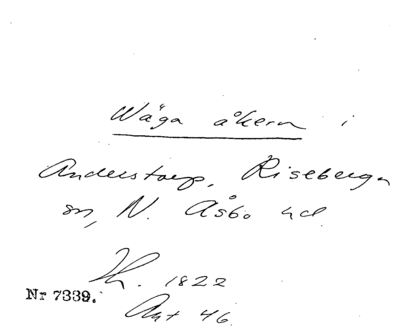 Wäga åkern i
Anderstorp, Riseberga
sn, N. Åsbo hd.
Th. 1822
Nr 7339.
Akt 46.